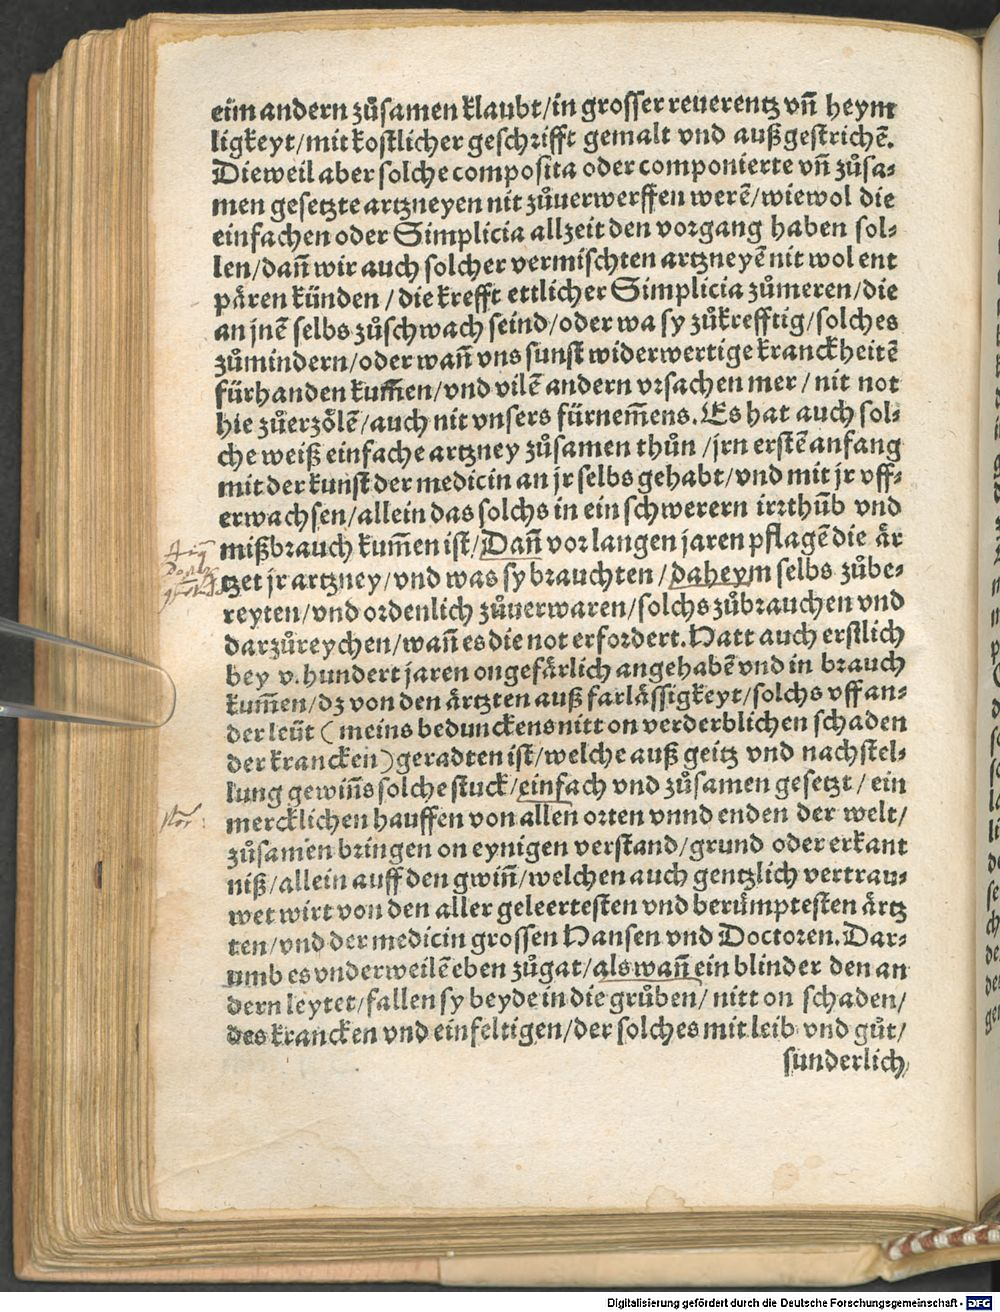 eim andern zůsamen klaubt/in grosser reuerentz vñ heym
ligkeyt/mit kostlicher geschrifft gemalt vnd außgestrichẽ.
Dieweil aber solche composita oder componierte vñ zůsa-
men gesetzte artzneyen nit zůuerwerffen werẽ/wiewol die
einfachen oder Simplicia allzeit den vorgang haben sol-
len/dañ wir auch solcher vermischten artzneyẽ nit wol ent
pären künden/die krefft ettlicher Simplicia zůmeren/die
an jnẽ selbs zůschwach seind/oder wa sy zůkrefftig/solches
zůmindern/oder wañ vns sunst widerwertige kranckheitẽ
fürhanden kum̃en/vnd vilẽ andern vrsachen mer/nit not
hie zůerzőlẽ/auch nit vnsers fürnem̃ens. Es hat auch sol-
che weiß einfache artzney zůsamen thůn/jrn erstẽ anfang
mit der kunst der medicin an jr selbs gehabt/vnd mit jr vff-
erwachsen/allein das solchs in ein schwerern irrthũb vnd
mißbrauch kum̃en ist/Dañ vor langen jaren pflagẽ die är
tzet jr artzney/vnd was sy brauchten/daheym selbs zůbe-
reyten/vnd ordenlich zůuerwaren/solchs zůbrauchen vnd
darzůreychen/wañ es die not erfordert. Hatt auch erstlich
bey v. hundert jaren ongefärlich angehabẽ vnd in brauch
kum̃en/dz von den ärtzten auß farlässigkeyt/solchs vff an-
der leüt (meins bedunckens nitt on verderblichen schaden
der krancken) geradten ist/welche auß geitz vnd nachstel-
lung gewiñs solche stuck/einfach vnd zůsamen gesetzt/ein
mercklichen hauffen von allen orten vnnd enden der welt/
zůsamen bringen on eynigen verstand/grund oder erkant
niß/allein auff den gwiñ/welchen auch gentzlich vertrau-
wet wirt von den aller geleertesten vnd berümptesten ärtz
ten/vnd der medicin grossen Hansen vnd Doctoren. Dar-
umb es vnderweilẽ eben zůgat/als wañ ein blinder den an
dern leytet/fallen sy beyde in die grůben/nitt on schaden/
des krancken vnd einfeltigen/der solches mit leib vnd gůt/
sunderlich
Digitalisierung gefördert durch die Deutsche Forschungsgemeinschaft - DFG